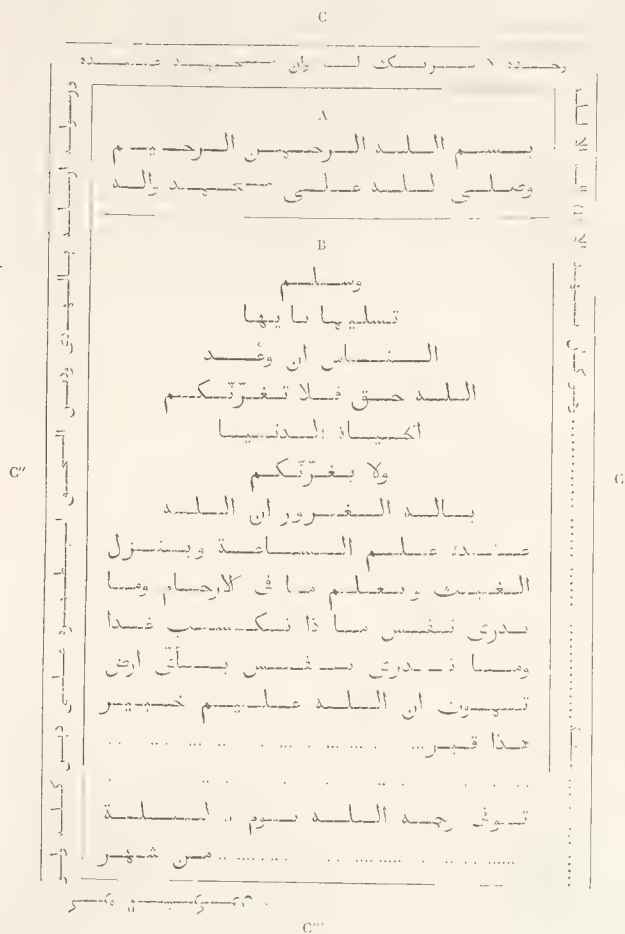 C
وحده لا شريك له وان محمد عبده
A
بسم الله الرحمن الرحيم
وصلى لله على محمد واله
B
وسلم
تسليما يا يها
الناس ان وعد
الله حق فلا تغرّنّكم
الحياة الدنيا
ولا يغرّنّكم
بالله الغرور ان الله
عنده علم الساعة وينزل
الغيث ويعلم ما فى الارحام وما
تدرى نفس ما ذا تكسب غدا
وما تدرى نفس بأىّ ارض
تموت ان الله عليم خبير
هذا قبر...
توفى رحمه الله يوم .. لليلة
من شهر
ورسوله ارسله بالهدى ودين الحق ليظهره على الدين كله ولو
C''
C
C'''